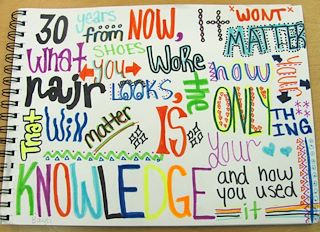 30 years from NOW, it WONT MATTER
What SHOES you WORE how YOUR
hair LOOKS, the ONLY THING
That Will matter IS your
KNOWLEDGE and how you used it